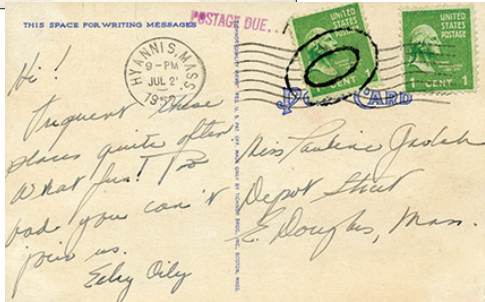 THIS SPACE FOR WRITING MESSAGES
POSTAGE DUE...
HYANNIS, MASS.
9-PM
JUL 2
195
UNITED
STATES
POSTAGE
CENT
UNITED
STATES
POSTAGE
1 CENT 1
CARD
Hi!
Frequent these
places quite often
What fun! Too
bad you can't
join us.
Oily
Miss Pauline
Depot Street
E. Douglas, Mass.